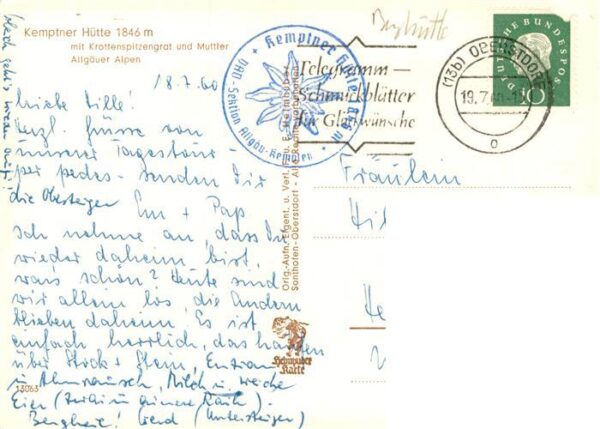 Kemptner Hütte 1846 m
mit Krottenspitzengrat und Muttler
Allgäuer Alpen
18.7.60
Berghütte
Kemptner Hütte 1846 m
DAV-Sektion Allgäu-Kempten
Telegramm –
Schmuckblätter
für Glückwünsche
(13b) OBERSTDORF
19.7.60
DEUTSCHE BUNDESPOST
10
Liebe Hille!
Herzl. Grüsse von
unserer Tagestour –
per pedes – senden Dir
die Obersteiger
+ Pap
Ich nehme an, dass Du
wieder daheim bist,
war's schön? Heute sind
wir allein los die Andern
blieben daheim. Es ist
einfach herrlich, das
über Stock + Stein, Enzian
u. Almrausch, Milch u. weiche
Eier
Bergheil! Gerd (Untersteiger)
Fräulein
Hil
He
Orig.-Aufn., Eigent. u. Verl.
Sonthofen-Oberstdorf
Schwaben
Karte
13063